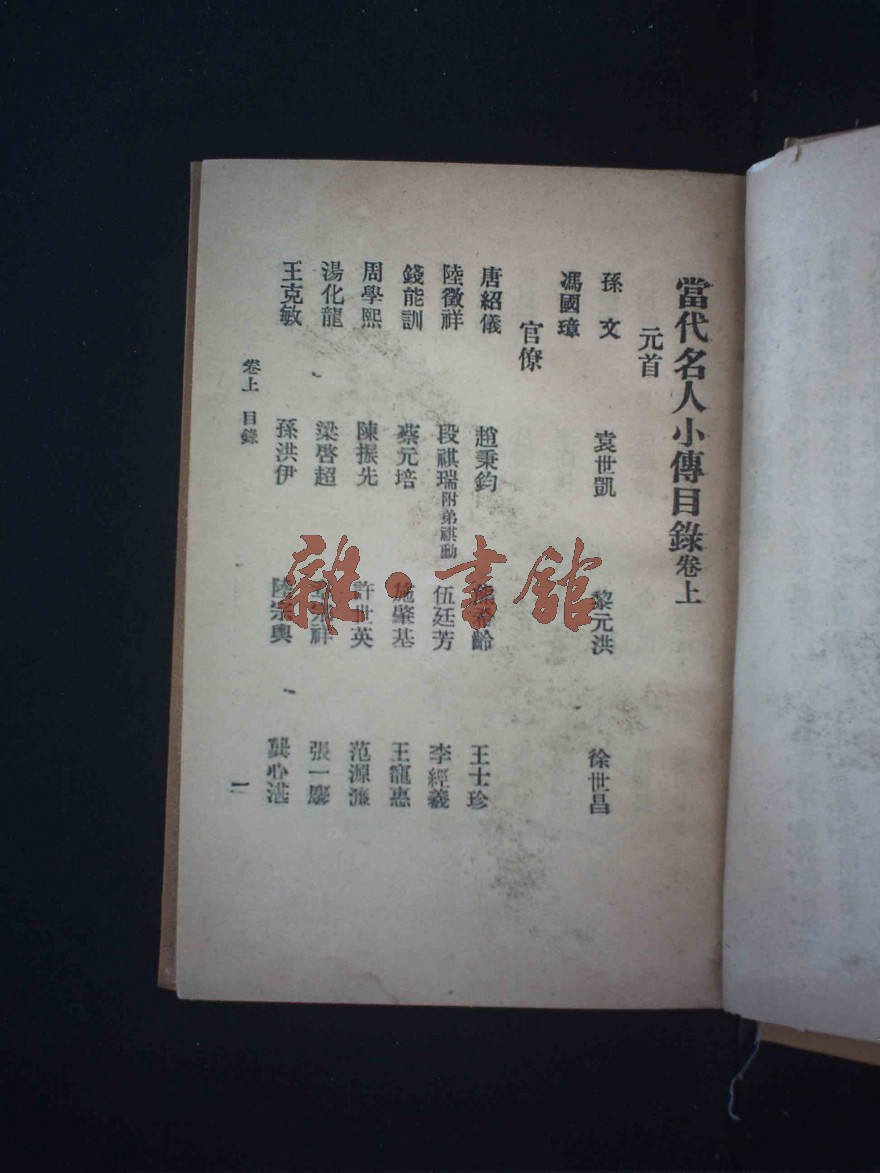 當代名人小傳目錄卷上
元首
孫文 袁世凱 黎元洪 徐世昌
馮國璋
官僚
唐紹儀 趙秉鈞 熊希齡 王士珍
陸徵祥 段祺瑞附弟祺勳 伍廷芳 李經羲
錢能訓 蔡元培 施肇基 王寵惠
周學熙 陳振先 許世英 范源濂
湯化龍 梁啓超 宗祥 張一麐
王克敏 孫洪伊 陸宗輿 龔心湛
卷上 目錄
一
雜·書館